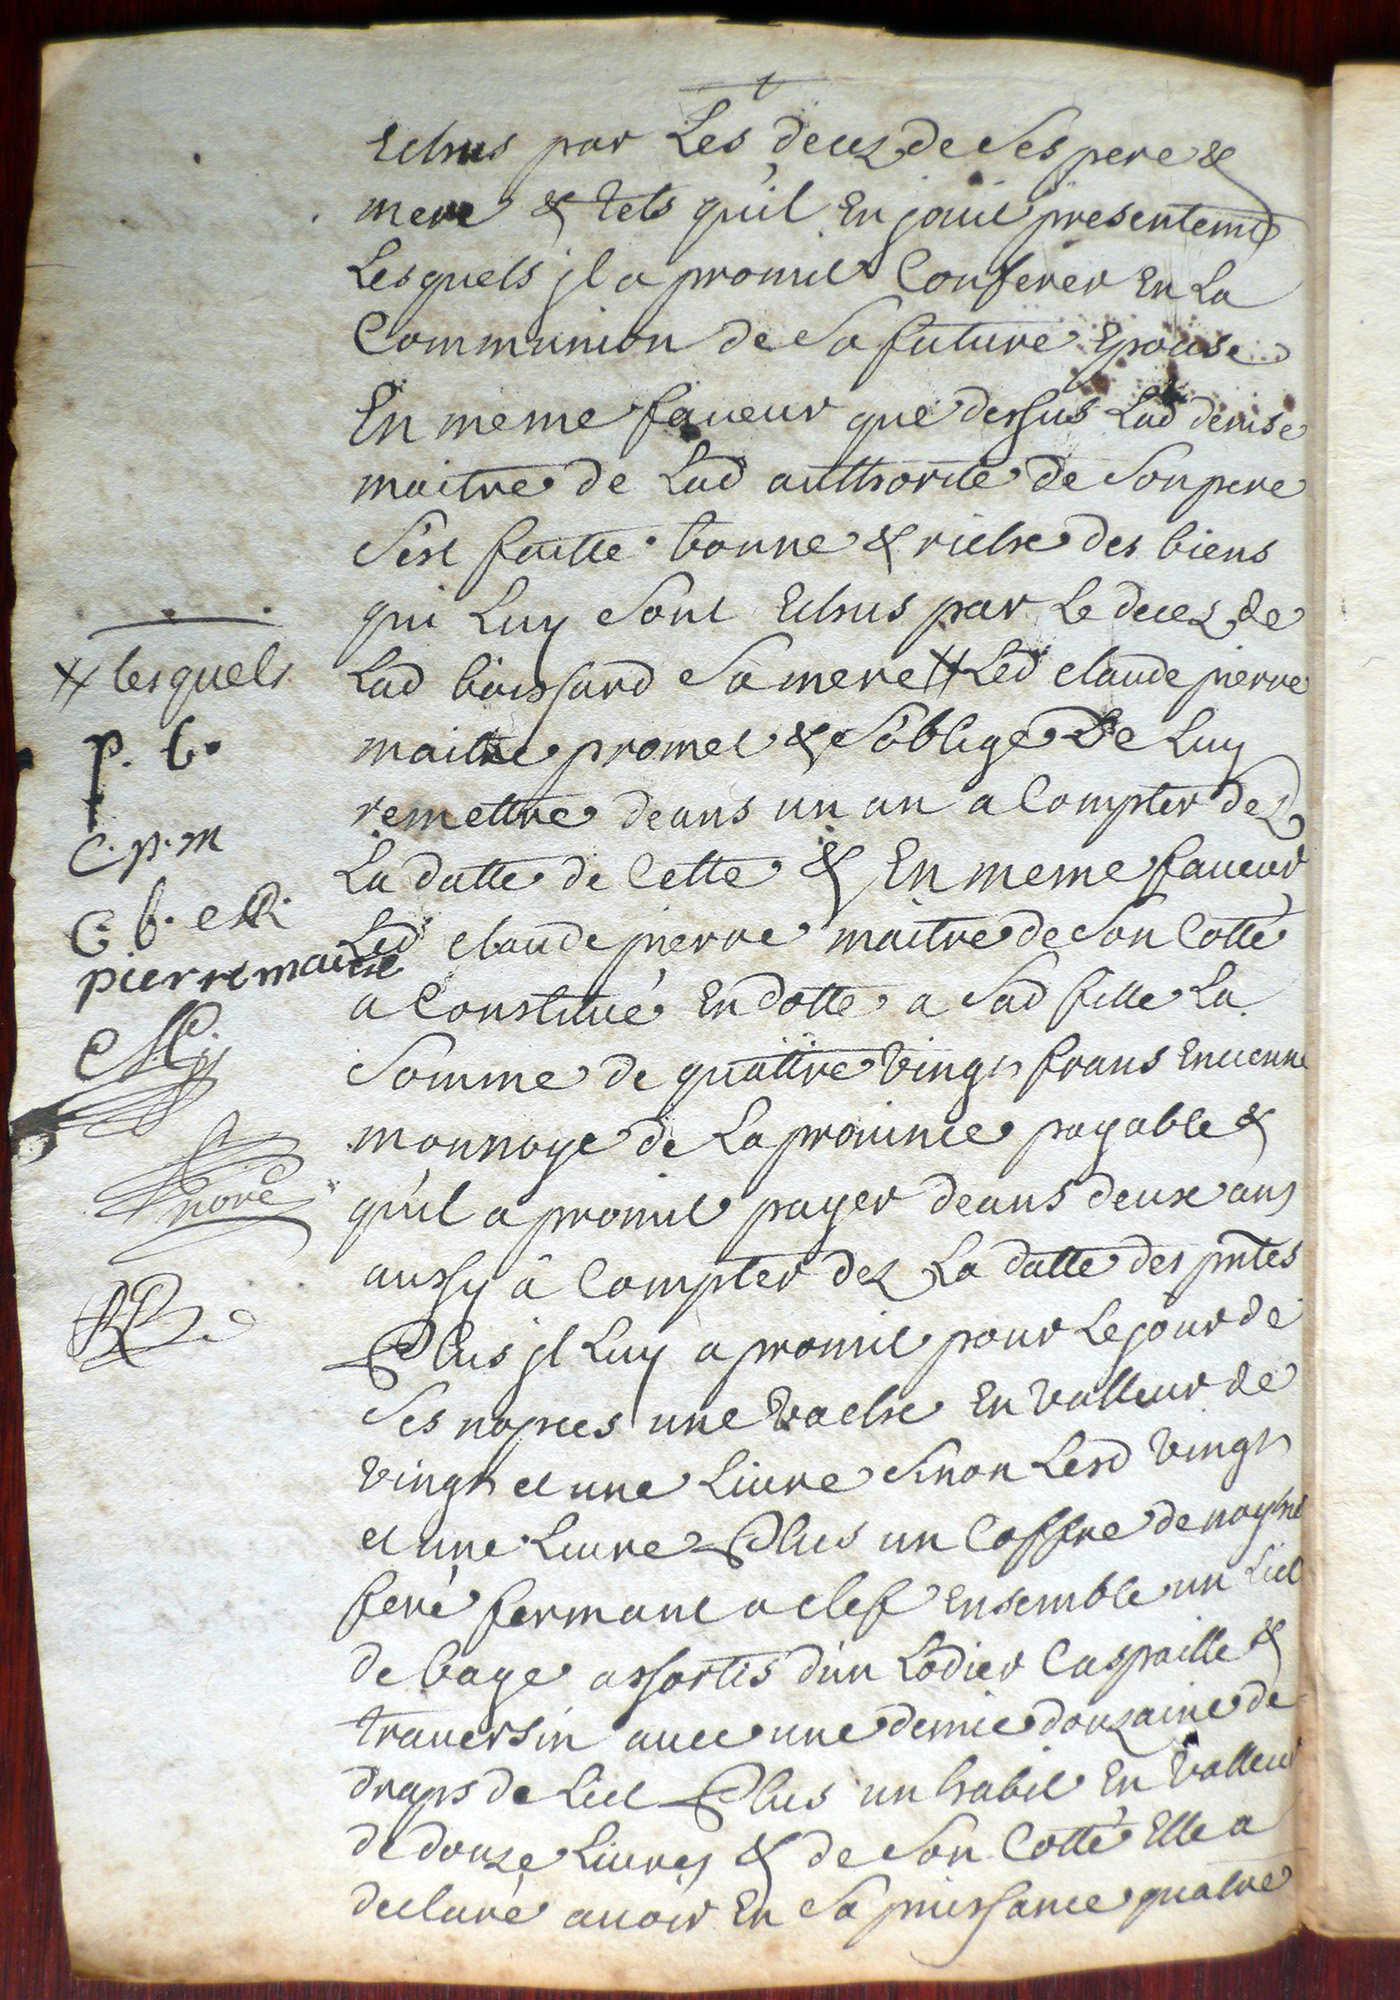 Echus par Les decez de Ses pere &
mere & tels qu'il En jouit presentemt
Lesquels jl a promit Conferer En La
Communion de Sa future Epouse
En meme faueur que dessus Lad denise
maitre de Lad authorité de Son pere
S'est faitte bonne & riche des biens
qui Luy Sont Echus par Le decez de
Lad boissard Sa mere # Led claude pierre
maitre promet & S'oblige De Luy
remettre deans un an a Compter dez
La datte de Cette & En meme faueur
Led claude pierre maitre de Son Cotté
a Constitué En dotte a Sad fille La
Somme de quattre vingts frans Encienne
monnoye de La prouince payable &
qu'il a promit payer deans deux ans
aussy à Compter dez La datte des pntes
Plus jl Luy a promit pour Le jour de
Ses nopces une vache En valleur de
vingt et une Liure Sinon Lesd vingt
et une Liure Plus un Coffre de noyhe
feré fermant a clef Ensemble un Lict
de bage assortis d'un Lodier Caspaille &
trauersin auec une demie douzaine de
draps de Lict Plus un habit En valleur
de douze Liures & de Son Cotté Elle a
declaré auoir En Sa puissance quatre
# lesquels
p. b.
c. p. m
C. b.
pierre maitre
nore